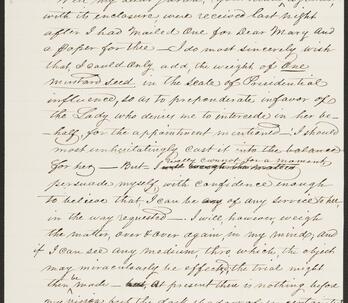 with its enclosure were received last night
after I had mailed One for Dear Mary and
a paper for thee — I do most sincerely wish
that I could only add, the weight of One
mustard seed in the Scale of Presidential
influence, so as to preponderate in favor of
the Lady who desires me to intercede in her be-
half, for the appointment mentioned — I should
most unhesitatingly cast it into the balance
for her — But — I really cannot for a moment
persuade myself, with confidence enough
to believe that I can be of any service to her
in the way requested — I will, however, weigh
the matter, over & over again in my mind, and
if I can see any medium, thro which, the object
may miraculously be effected, the trial might
then, be made — At present there is nothing before